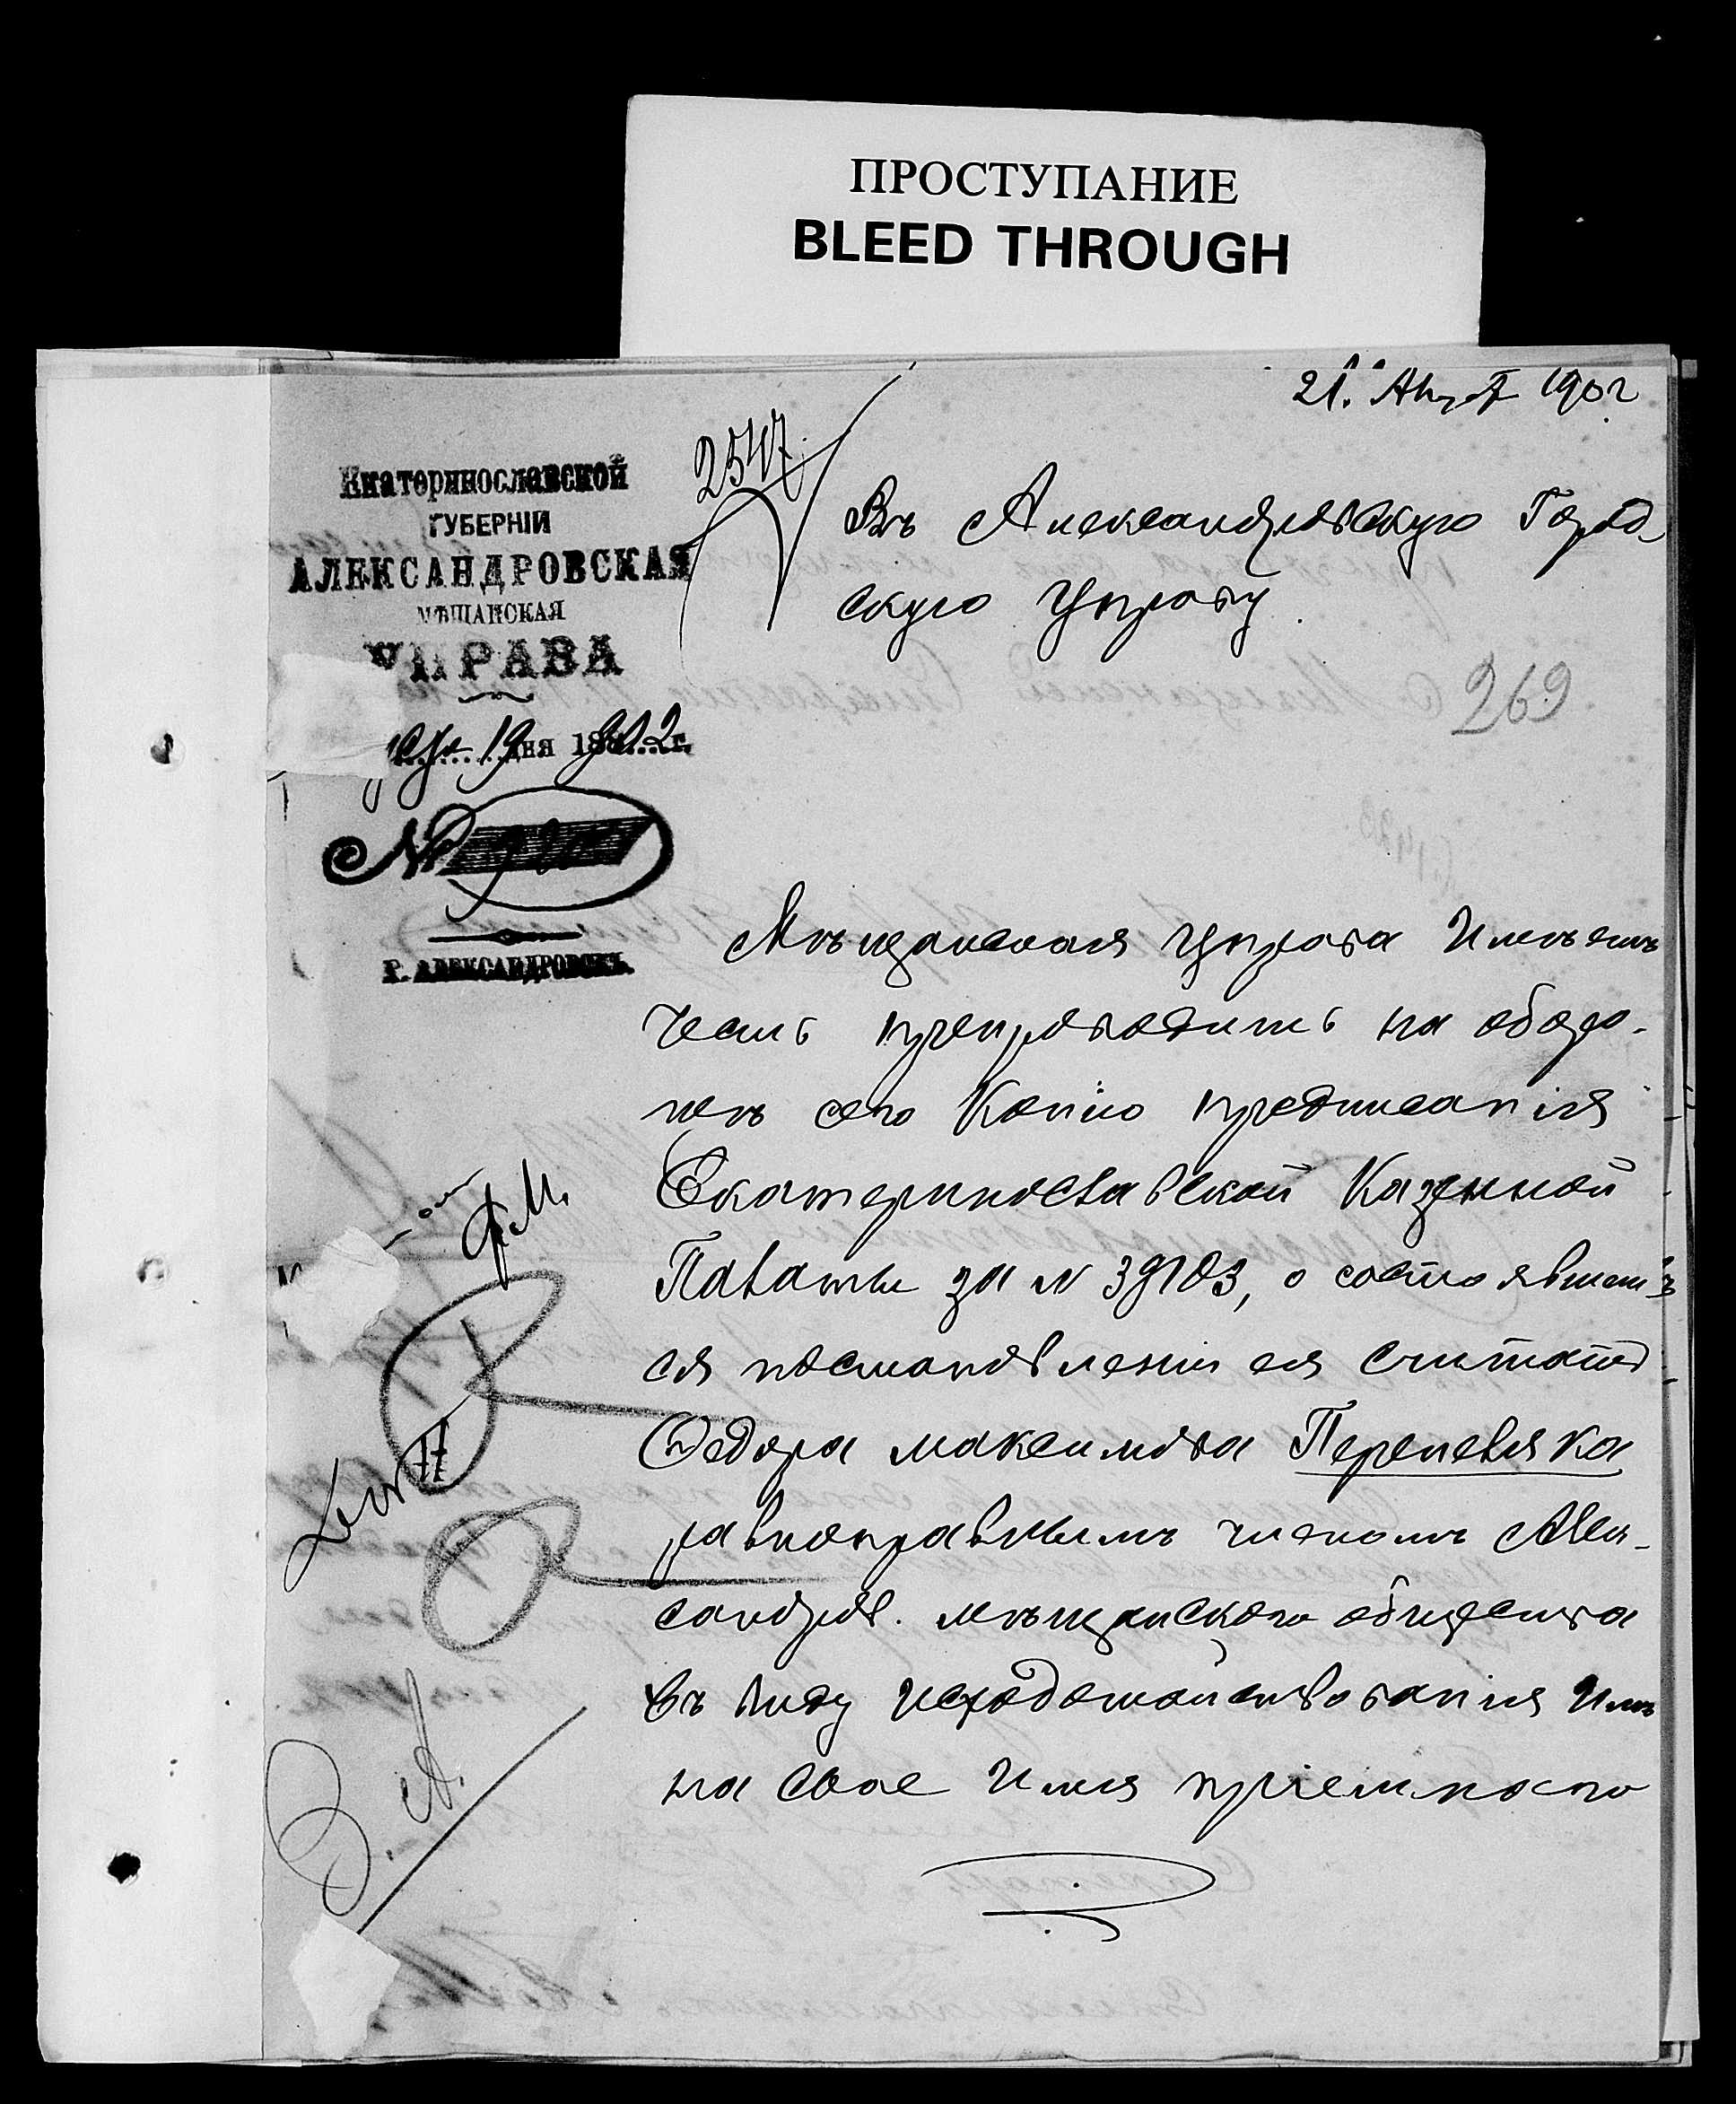 ПРОСТУПАНИЕ
BLEED THROUGH
21. Авг. 1902
2547
Екатеринославской
ГУБЕРНІИ
АЛЕКСАНДРОВСКАЯ
МѢЩАНСКАЯ
УПРАВА
19 дня 1902 г.
№
Г. АЛЕКСАНДРОВСКЪ.
Въ Александровскую Город-
скую Управу
269
Мѣщанская Управа Имѣетъ
честь препроводить на оборо-
тѣ сего Копію предписанія
Екатеринославской Казенной
Палаты за № 39103, о состоявшем-
ся постановленіи ея считать
Федора Максимова Перепеляка
равноправнымъ членомъ Алек-
сандров. мѣщанскаго общества
въ виду исходатайствованія Имъ
на свое Имя пріемнаго